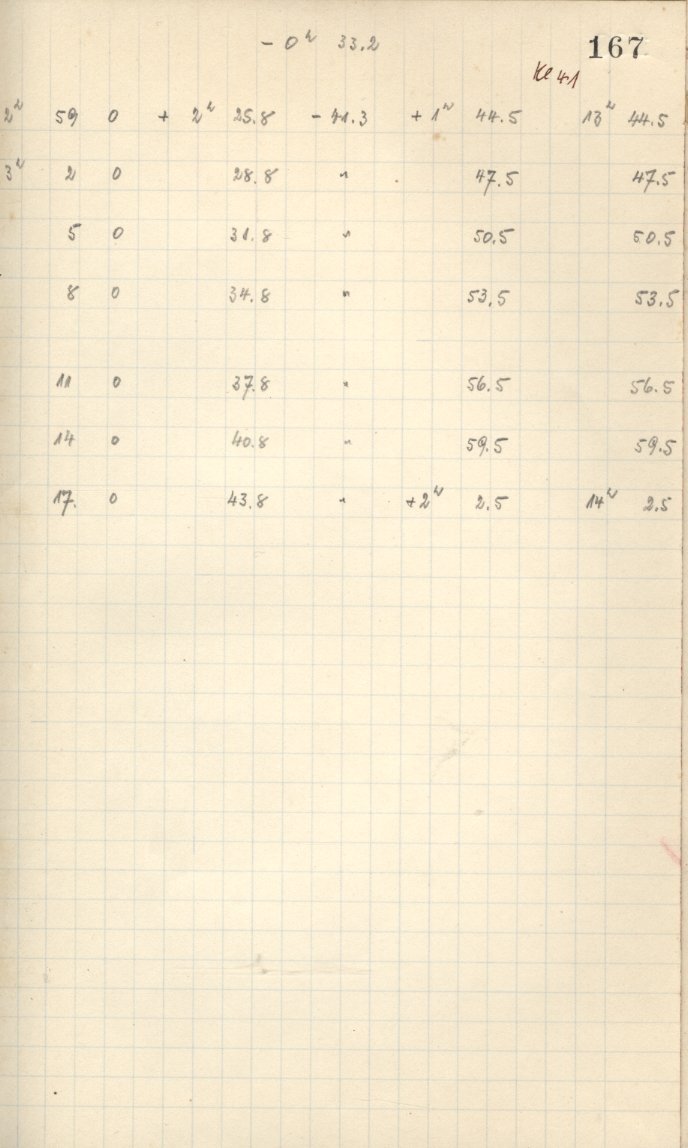 - 0ʰ 33.2 167
Ke 41
2ʰ 59 0 + 2ʰ 25.8 - 41.3 + 1ʰ 44.5 13ʰ 44.5
3ʰ 2 0 28.8 " 47.5 47.5
5 0 31.8 " 50.5 50.5
8 0 34.8 " 53.5 53.5
11 0 37.8 " 56.5 56.5
14 0 40.8 " 59.5 59.5
17. 0 43.8 " +2ʰ 2.5 14ʰ 2.5